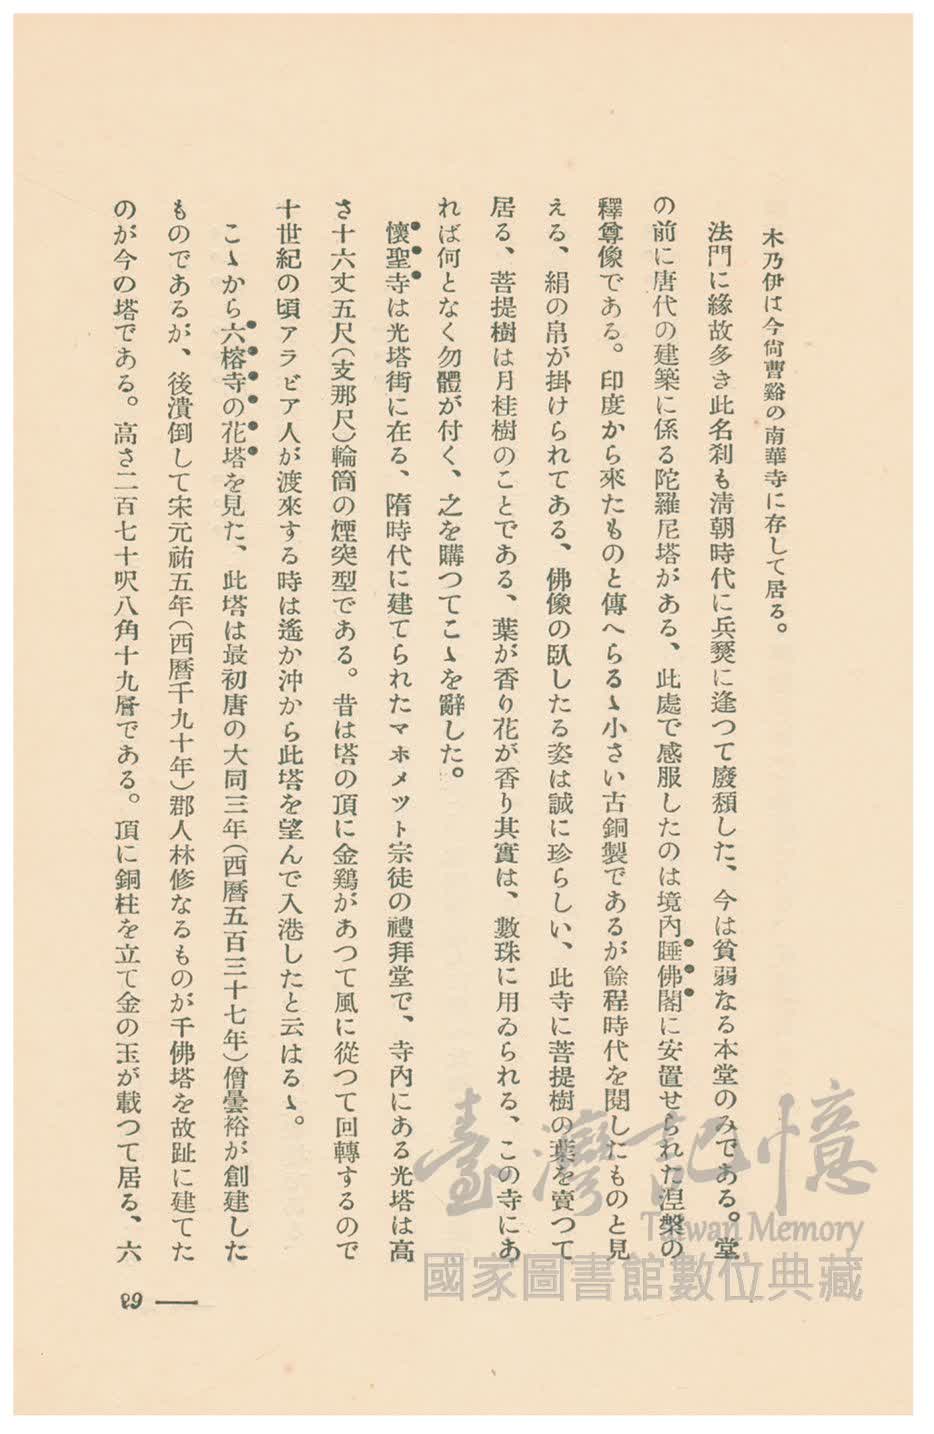 木乃伊は今尙曹谿の南華寺に存して居る。
法門に緣故多き此名刹も淸朝時代に兵燹に逢つて廢頽した、今は貧弱なる本堂のみである。堂
の前に唐代の建築に係る陀羅尼塔がある、此處で感服したのは境內睡佛閣に安置せられた涅槃の
釋尊像である。印度から來たものと傳へらるゝ小さい古銅製であるが餘程時代を閱したものと見
える、絹の帛が掛けられてある、佛像の臥したる姿は誠に珍らしい、此寺に菩提樹の葉を賣つて
居る、菩提樹は月桂樹のことである、葉が香り花が香り其實は、數珠に用ゐられる、この寺にあ
れば何となく勿體が付く、之を購つてこゝを辭した。
懷聖寺は光塔街に在る、隋時代に建てられたマホメツト宗徒の禮拜堂で、寺內にある光塔は高
さ十六丈五尺(支那尺)輪筒の煙突型である。昔は塔の頂に金鷄があつて風に從つて回轉するので
十世紀の頃アラビア人が渡來する時は遙か沖から此塔を望んで入港したと云はるゝ。
こゝから六榕寺の花塔を見た、此塔は最初唐の大同三年(西曆五百三十七年)僧曇裕が創建した
ものであるが、後潰倒して宋元祐五年(西曆千九十年)郡人林修なるものが千佛塔を故趾に建てた
のが今の塔である。高さ二百七十呎八角十九層である。頂に銅柱を立て金の玉が載つて居る、六
69
臺灣記憶
Taiwan Memory
國家圖書館數位典藏